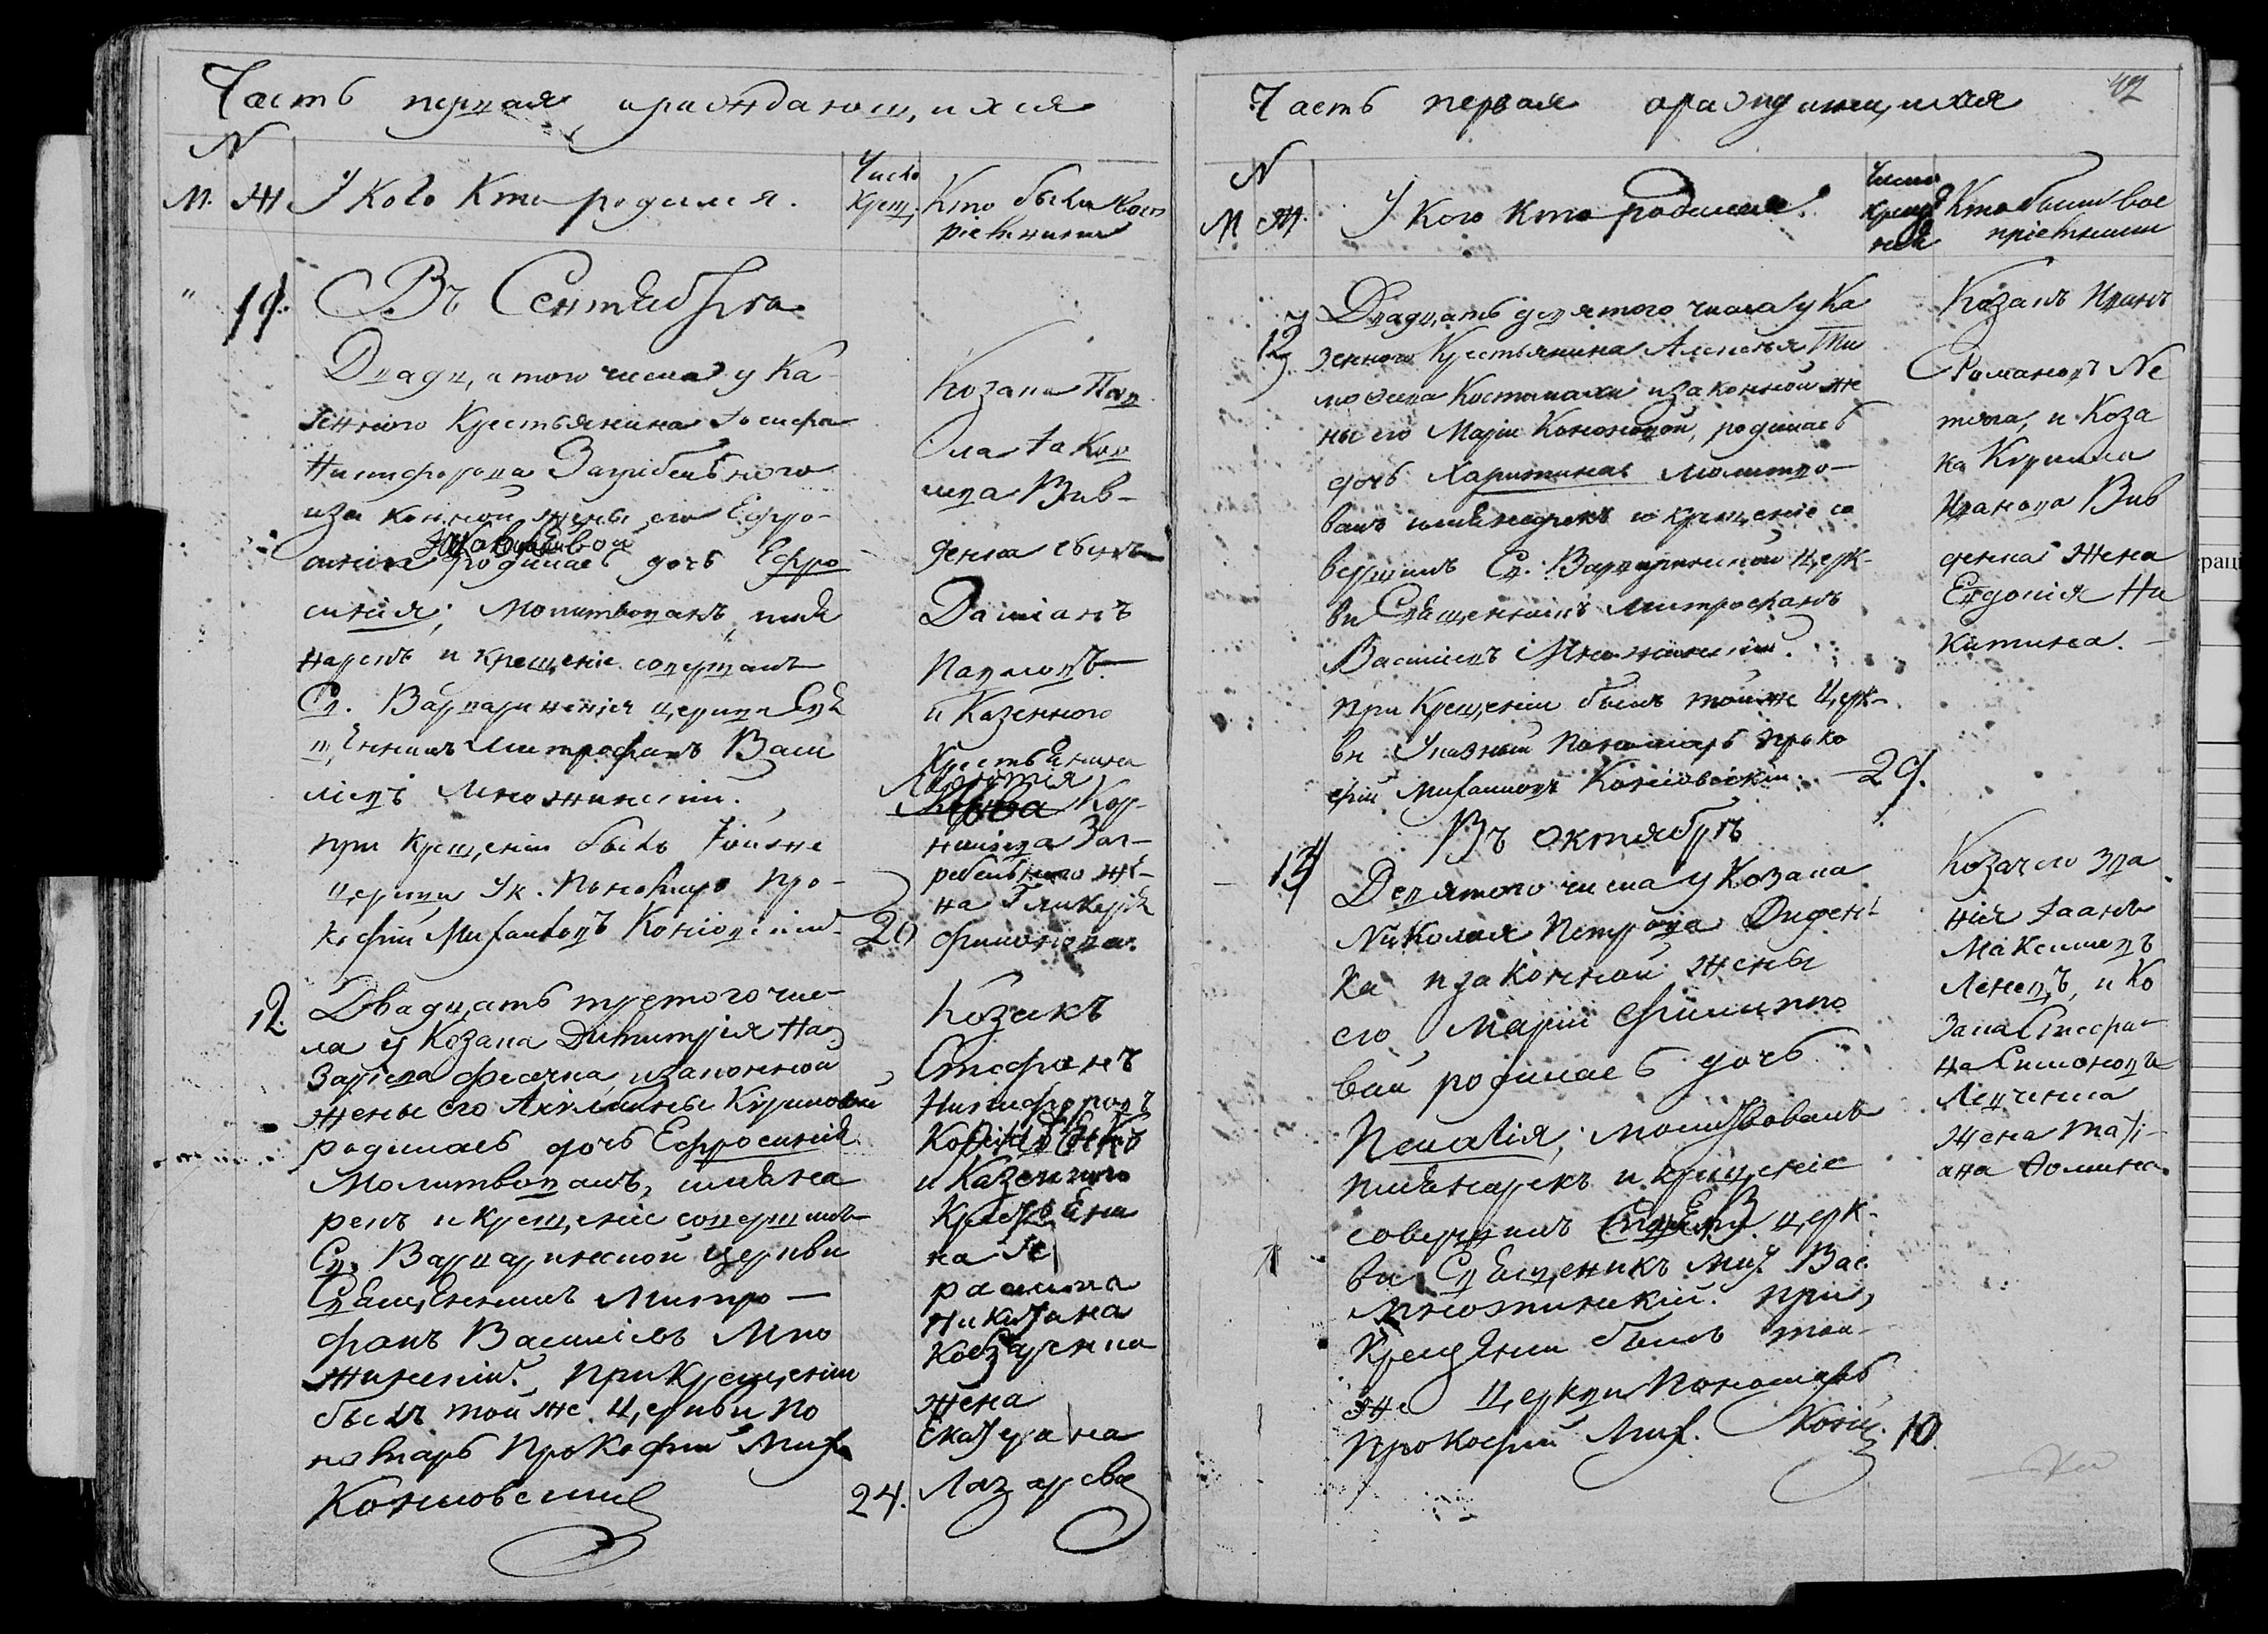 Часть первая о раждающихся
N
М. Ж У кого кто родился. Число крещ. Кто были восп
риемники
" 11. Въ Сентябрѣ
Двадцатого числа у Ка
зенного Крестьянина Іосифа
Никифорова Загребельного
и законной жены его Ефро
синіи родилась дочь Ефро
синія; Молитвовалъ, имя
нарекъ и крещеніе совершалъ
Св. Варваринскія церкви Свя
щенникъ Митрофанъ Васи
ліевъ Множинскій.
при крещеніи былъ тойже
церкви Ук. Пономарь Про-
кофій Михайловъ 20
Козака Пав
ла Яков
лева Вив-
денка сынъ
Даміанъ
Павловъ
и Казенного
Крестьянина
Кор-
ниліева Заг-
ребельного же-
на Гликерія
Филонова.
12. Двадцать третого чис-
ла у Козака Димитрія На
заріева и законной
жены его Акилины Кириловой
родилась дочь Ефросинія
Молитвовалъ, имя на
рекъ и крещеніе совершилъ
Св. Варваринской церкви
Священникъ Митро-
фанъ Василіевъ Мно
жинскій. При крещеніи
былъ той же церкви По
номарь Прокофій Мих.
24.
Козакъ
Стефанъ
Никифоровъ
и Казенного
Крестьяни
на Ге
расима
Никитина
Кобзаренка
жена
Екатерина
Лазарева
42
Часть первая о раждающихся
N
М. Ж. У кого кто родился. Число креще
нія Кто были вос
пріемники
13 Двадцать девятого числа у Ка
зенного Крестьянина Алексѣя Ти
мофеева и законной же
ны его Маріи Кононовой, родилась
дочь Харитина Молитво-
валъ имя нарекъ и крещеніе со
вершилъ Св. Варваринской церк-
ви Священникъ Митрофанъ
Василіевъ Множинскій.
при крещеніи былъ тойже церк-
ви Указный пономарь Проко
фій Михайловъ 29.
Козакъ Иванъ
Романовъ Не
това, и Коза
ка Кирилла
Иванова Вив
денка жена
Евдокія Ни
китина. -
Въ октябрѣ
- 14 Девятого числа у Козака
Николая Петрова Диден
ка и законной жены
его Маріи Филиппо
вой родилась дочь
Пелагія; молитвовалъ
имя нарекъ и крещеніе
совершилъ церк-
ви Священникъ Мит. Вас.
Множинскій. При
крещеніи былъ той
же церкви Пономарь
Прокофій Мих. 10
Козачого зва
нія Іоанъ
Максимовъ
Ленецъ, и Ко
зака Стефа-
на Симонова
Левченка
жена Тати-
ана Фомина.